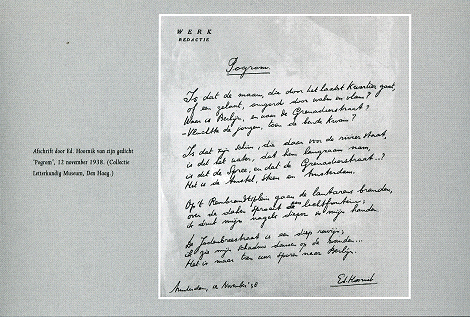 Afschrift door Ed. Hoornik van zijn gedicht
'Pogrom', 12 november 1938. (Collectie
Letterkundig Museum, Den Haag.)
WERK
REDACTIE
Pogrom.
Is dat de maan, die door het laatst kwartier gaat,
of een gelaat, verwrongen door water en vlam?
Waar is Berlijn, en waar de Grenadierstraat?
Vluchtte de jongen, toen de bende kwam?
Is dat zijn schim, die daar voor de rivier staat,
is dit het water, dat hem langzaam nam,
is dit de Spree, en dat de Grenadierstraat..?
Het is de Amstel, steen en Amsterdam.
Op 't Rembrandtplein gaan de lantarens branden,
over de daken sproeit de lichtfontein;
ik druk mijn nagels dieper in mijn handen
De Jodenbreestraat is een diep ravijn;
ik zie mijn schaduw dansen op de wanden...
Het is maar tien uur sporen naar Berlijn.
Amsterdam, 12 November '38
Ed. Hoornik